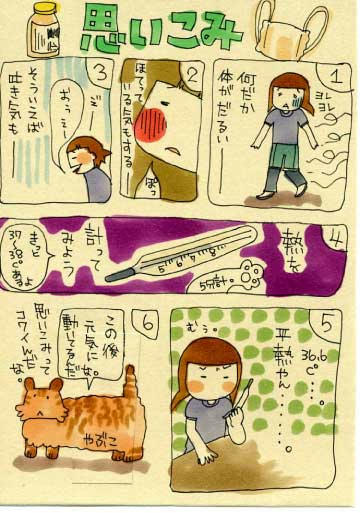 思いこみ
1
何だか
体がだるい
ヨレ
ヨレ
2
ほてって
いる気もする
ぽっ
3
そういえば
吐き気も
おうえー
4
熱を
計って
みよう
きっと
37〜38℃あるよ
5分計。
5
36.6
℃…。
平熱やん……。
むう。
6
この後
元気に
動いてるんだ
な。
思いこみって
コワイんだ
な。
やぶこ